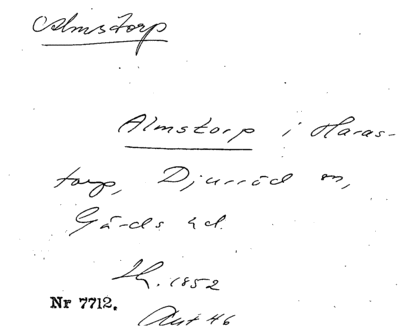 Almstorp
Almstorp i Haras-
torp, Djurröd sn,
Gärds hd.
1852
Nr 7712.
46